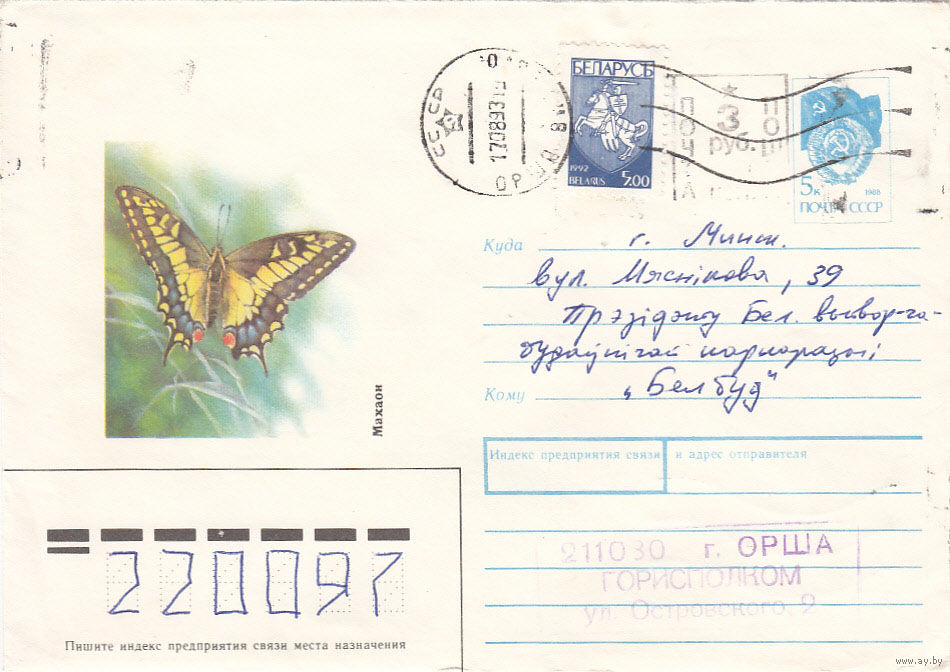 СССР
17 08 93 1
ОРША
БЕЛАРУСЬ
1992
BELARUS 5.00
ПОЧТА
3
руб.
5к 1988
ПОЧТА СССР
Куда г. Минск.
вул. Мяснікова, 39
Прэзідэнту Бел. вытвор-ча-
будаўнічай карпарацыі
Кому „Белбуд"
Махаон
Индекс предприятия связи и адрес отправителя
211030 г. ОРША
ГОРИСПОЛКОМ
ул. Островского 2
220097
Пишите индекс предприятия связи места назначения
www.ay.by